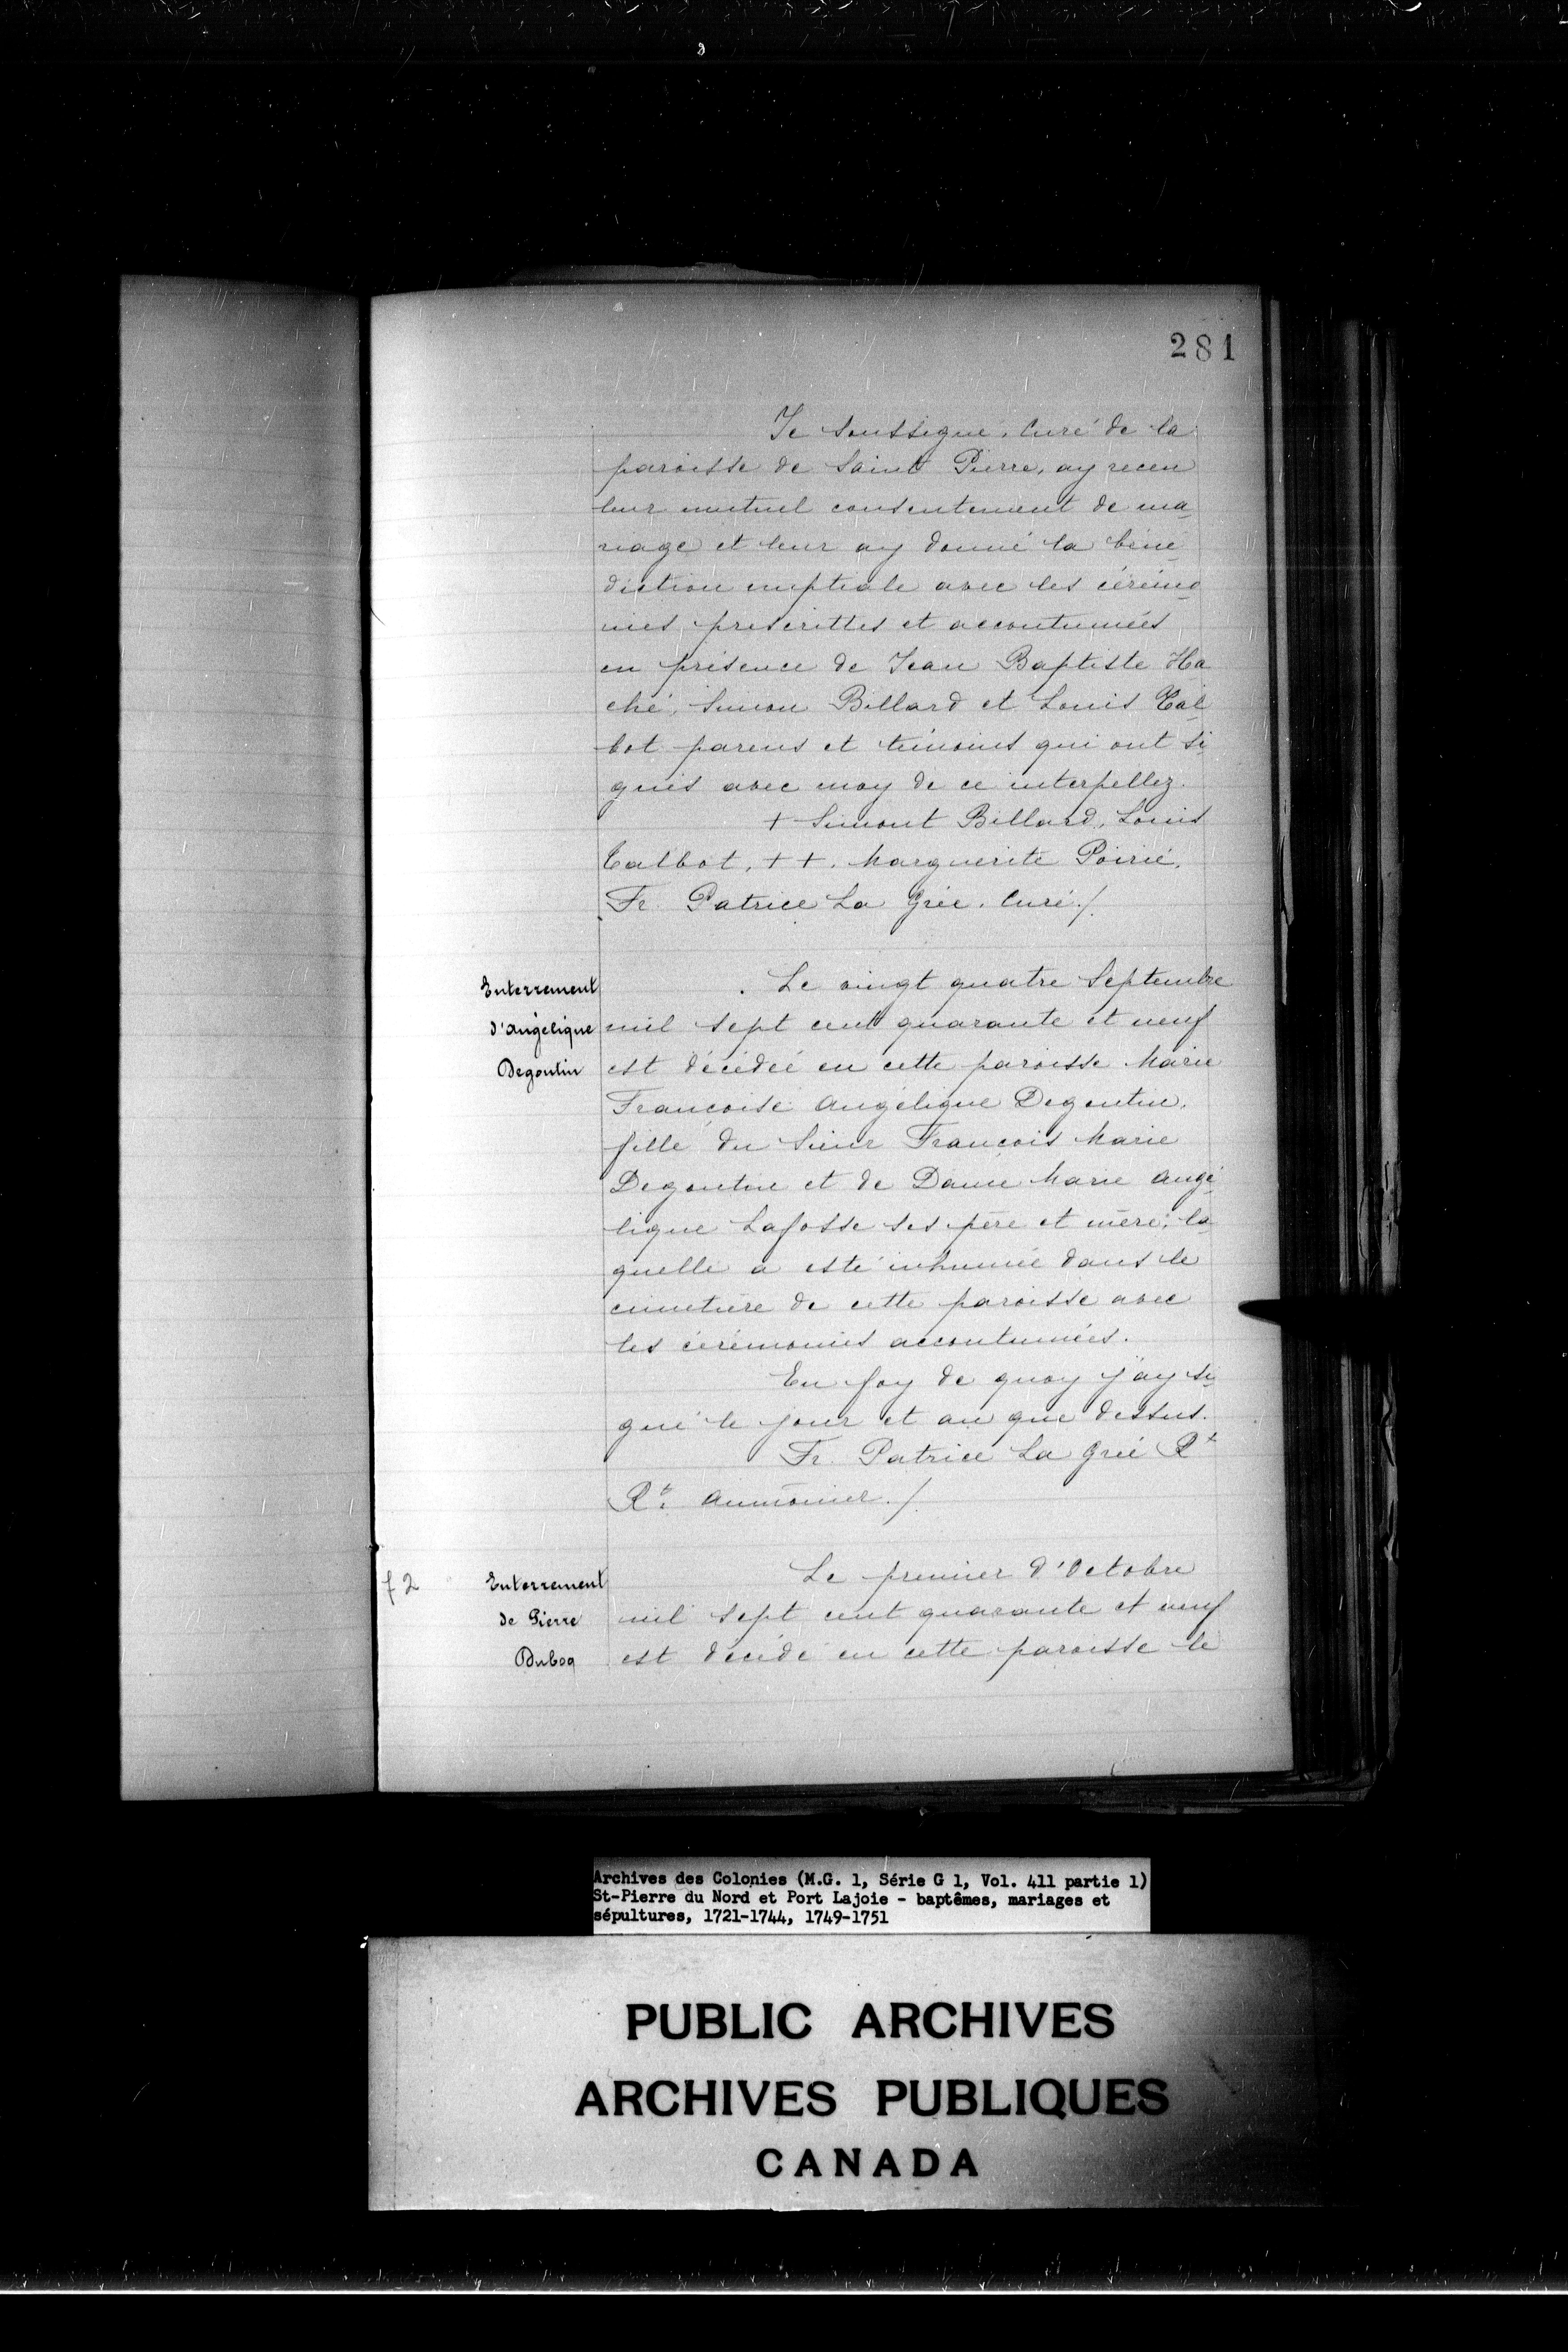 281
Je soussigné, Curé de la
paroisse de Saint Pierre, ay receu
leur mutuel consentement de ma-
riage et leur ay donné la béné-
diction nuptiale avec les cérémo-
nies prescrittes et accoutumées
en présence de Jean Baptiste Ha
ché, Simon Billard et Louis Tal-
bot parens et témoins qui ont si-
gnés avec moy de ce interpellez.
+ Simont Billard, Louis
Talbot, ++. Marguerite Poirié,
Fr. Patrice La Grée. Curé./.
Enterrement
d'Angélique
Degoutin
Le vingt quatre Septembre
mil sept cent quarante et neuf
est décédée en cette paroisse Marie
Françoise Angélique Degoutin,
fille du Sieur François Marie
Degoutin et de Dame Marie Angé-
lique Lafosse ses père et mère; la-
quelle a esté inhumée dans le
cimetière de cette paroisse avec
les cérémonies accoutumées.
En foy de quoy j'ay si-
gné le jour et an que dessus.
Fr. Patrice La Grée Rt
Rt. aumônier./.
f 2
Enterrement
de Pierre
Duboq
Le premier d'Octobre
mil sept cent quarante et neuf
est décédé en cette paroisse le
Archives des Colonies (M.G. 1, Série G 1, Vol. 411 partie 1)
St-Pierre du Nord et Port Lajoie - baptêmes, mariages et
sépultures, 1721-1744, 1749-1751
PUBLIC ARCHIVES
ARCHIVES PUBLIQUES
CANADA